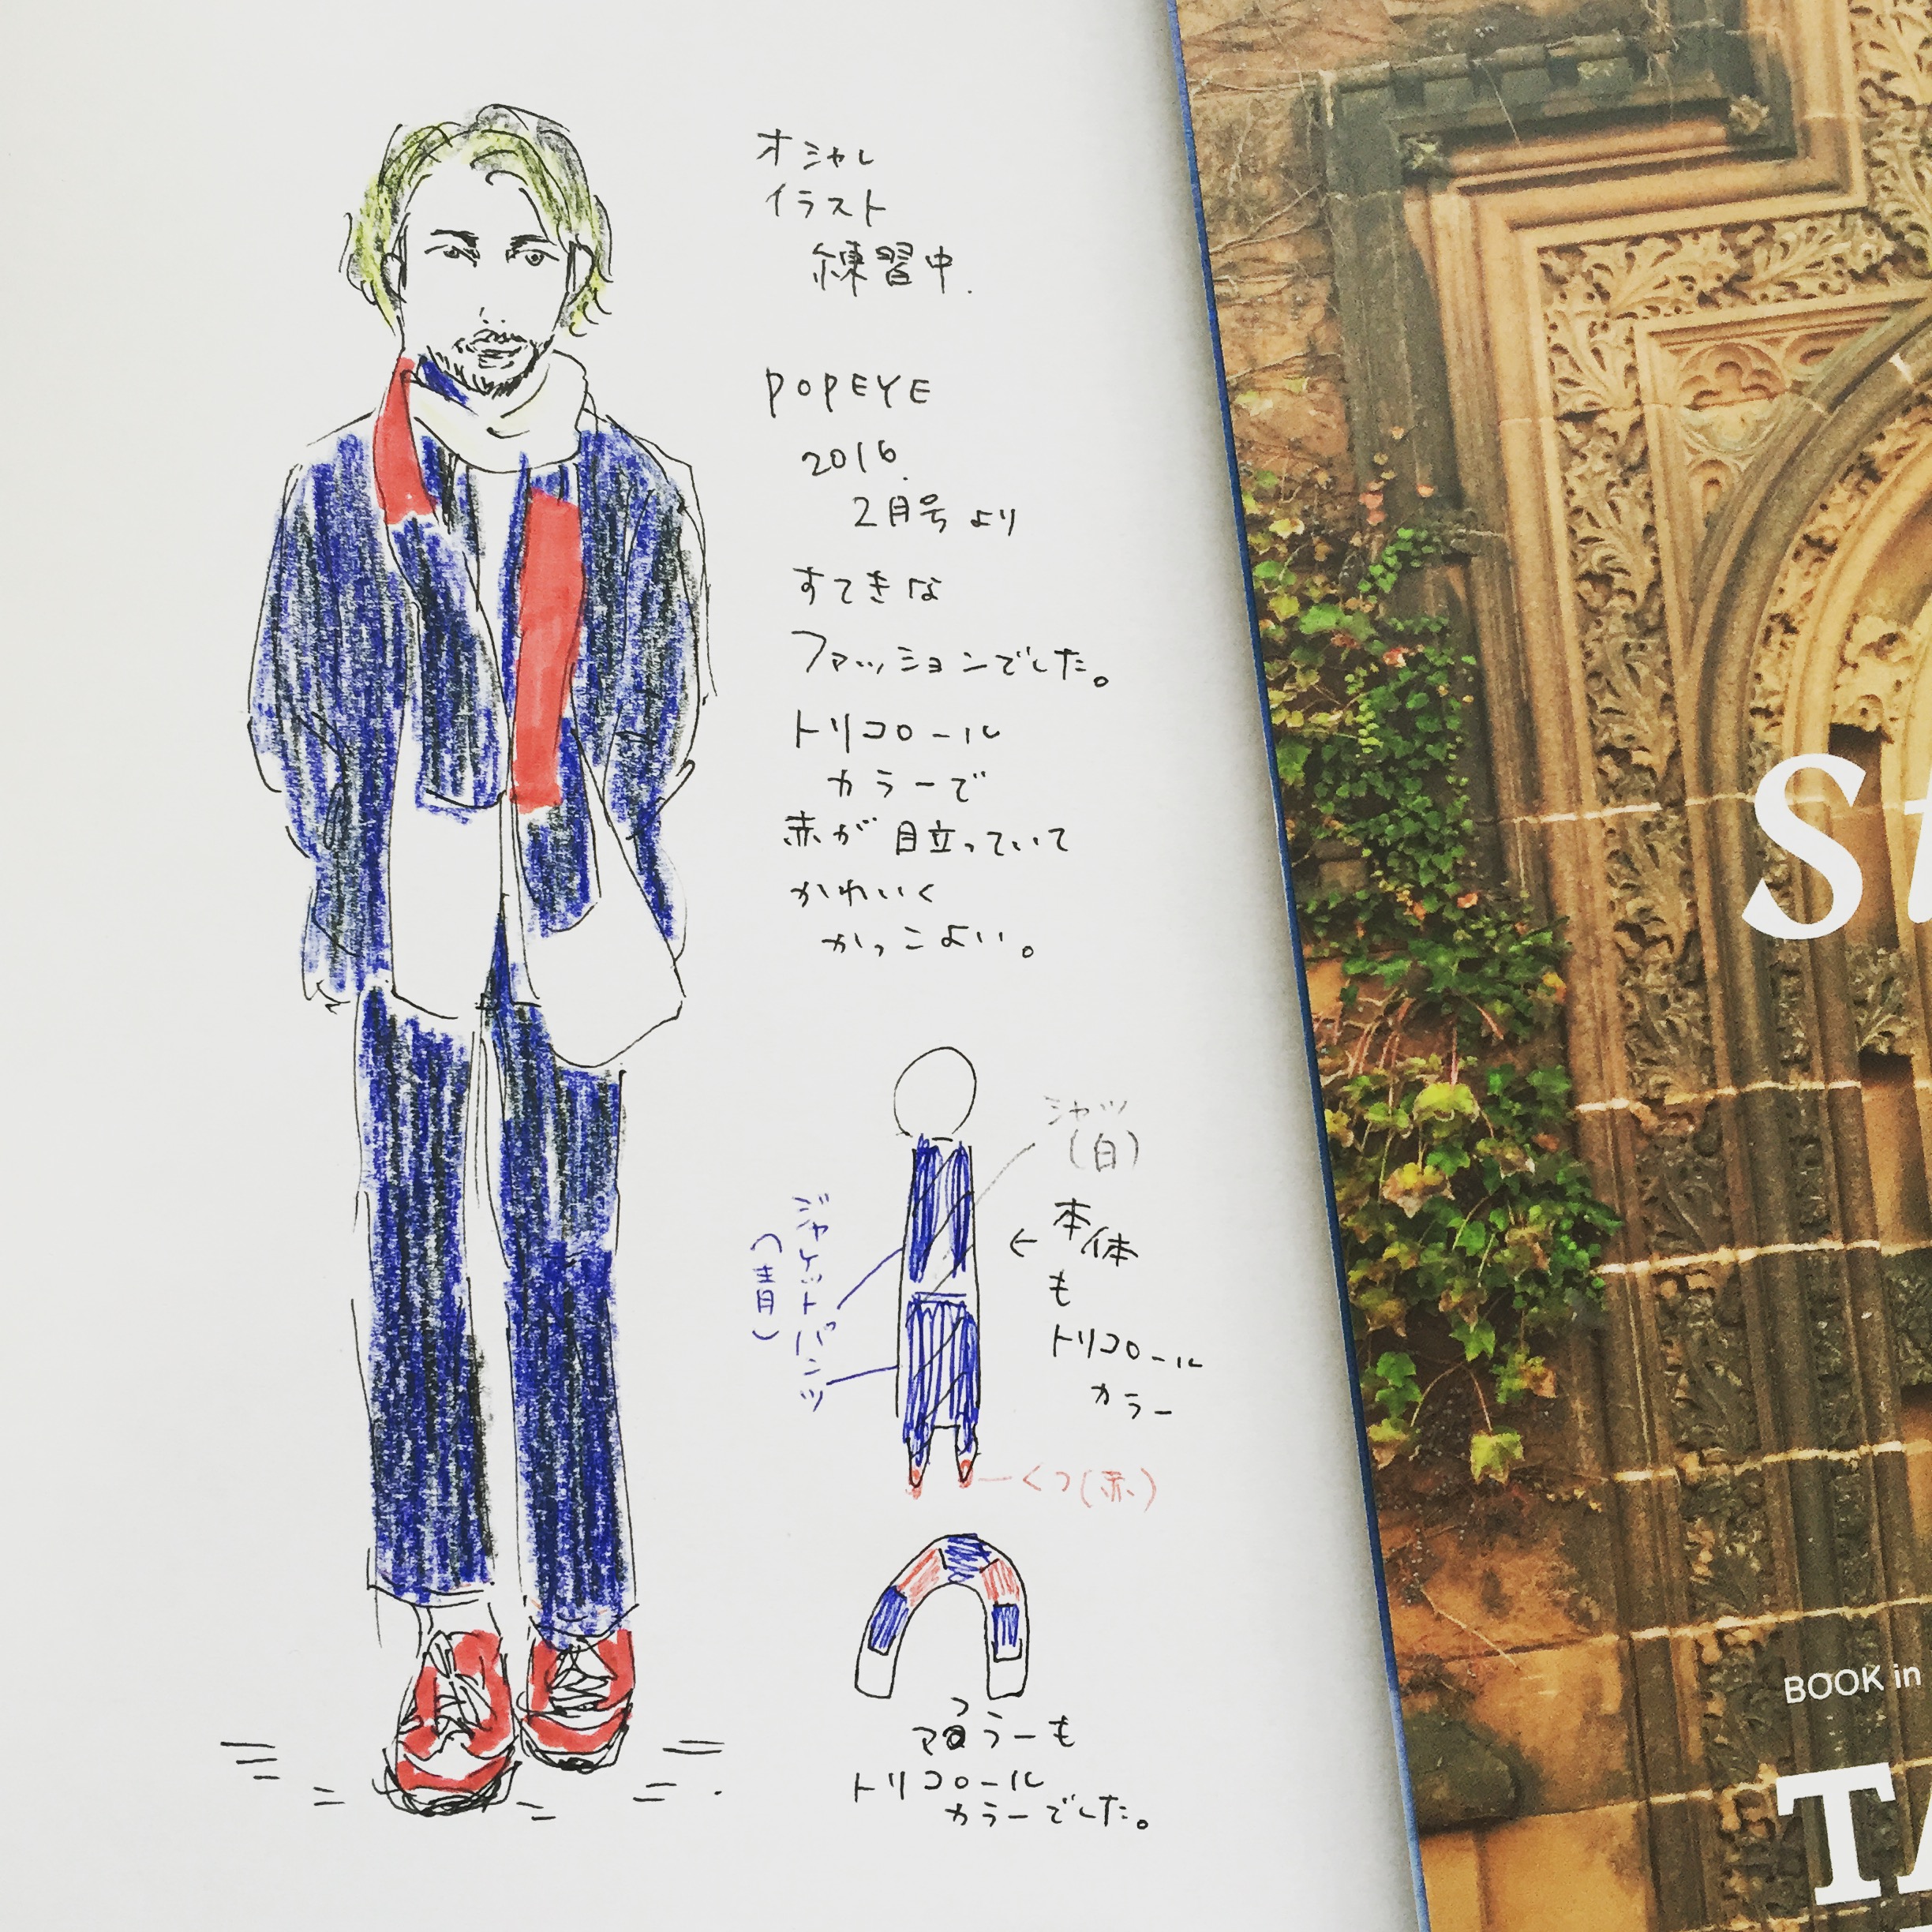 オシャレ
イラスト
練習中.
POPEYE
2016.
2月号より
すてきな
ファッションでした。
トリコロール
カラーで
赤が目立っていて
かわいく
かっこよい。
シャツ
(白)
ジャケットパンツ
(青)
← 本体
も
トリコロール
カラー
くつ(赤)
マフラーも
トリコロール
カラーでした。
BOOK in